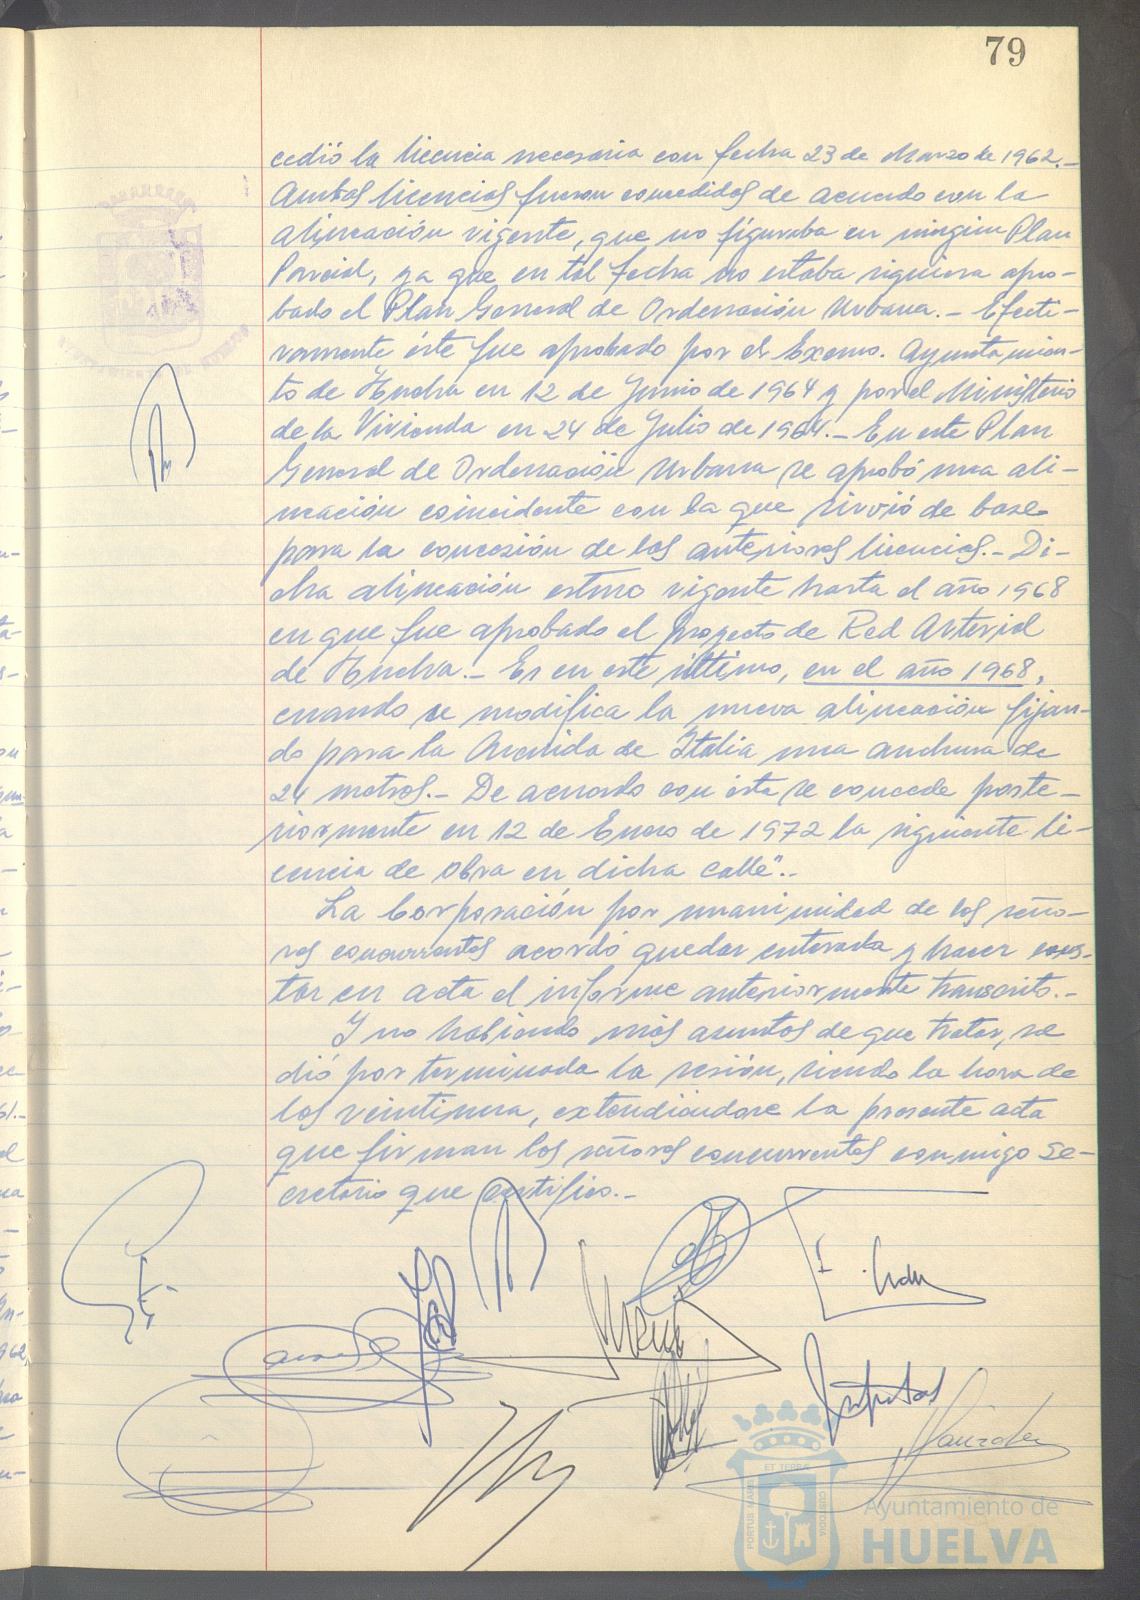 79
cedió la licencia necesaria con fecha 23 de Marzo de 1962.-
Ambas licencias fueron concedidas de acuerdo con la
alineación vigente, que no figuraba en ningún Plan
Parcial, ya que en tal fecha no estaba siquiera apro-
bado el Plan General de Ordenación Urbana.- Efecti-
vamente éste fue aprobado por el Excmo. Ayuntamien-
to de Huelva en 12 de Junio de 1964 y por el Ministerio
de la Vivienda en 24 de Julio de 1964.- En este Plan
General de Ordenación Urbana se aprobó una ali-
neación coincidente con la que sirvió de base
para la concesión de las anteriores licencias.- Di-
cha alineación estuvo vigente hasta el año 1968
en que fue aprobado el proyecto de Red Arterial
de Huelva.- Es en este último, en el año 1968,
cuando se modifica la nueva alineación fijan-
do para la Avenida de Italia una anchura de
24 metros.- De acuerdo con ésta se concede poste-
riormente en 12 de Enero de 1972 la siguiente li-
cencia de obra en dicha calle".-
La Corporación por unanimidad de los seño-
res concurrentes acordó quedar enterada y hacer cons-
tar en acta el informe anteriormente transcrito.-
Y no habiendo más asuntos de que tratar, se
dió por terminada la sesión, siendo la hora de
las veintiuna, extendiéndose la presente acta
que firman los señores concurrentes conmigo Se-
cretario que certifico.-
PORTUS MARIS
ET TERRAE
CUSTODIA
Ayuntamiento de
HUELVA